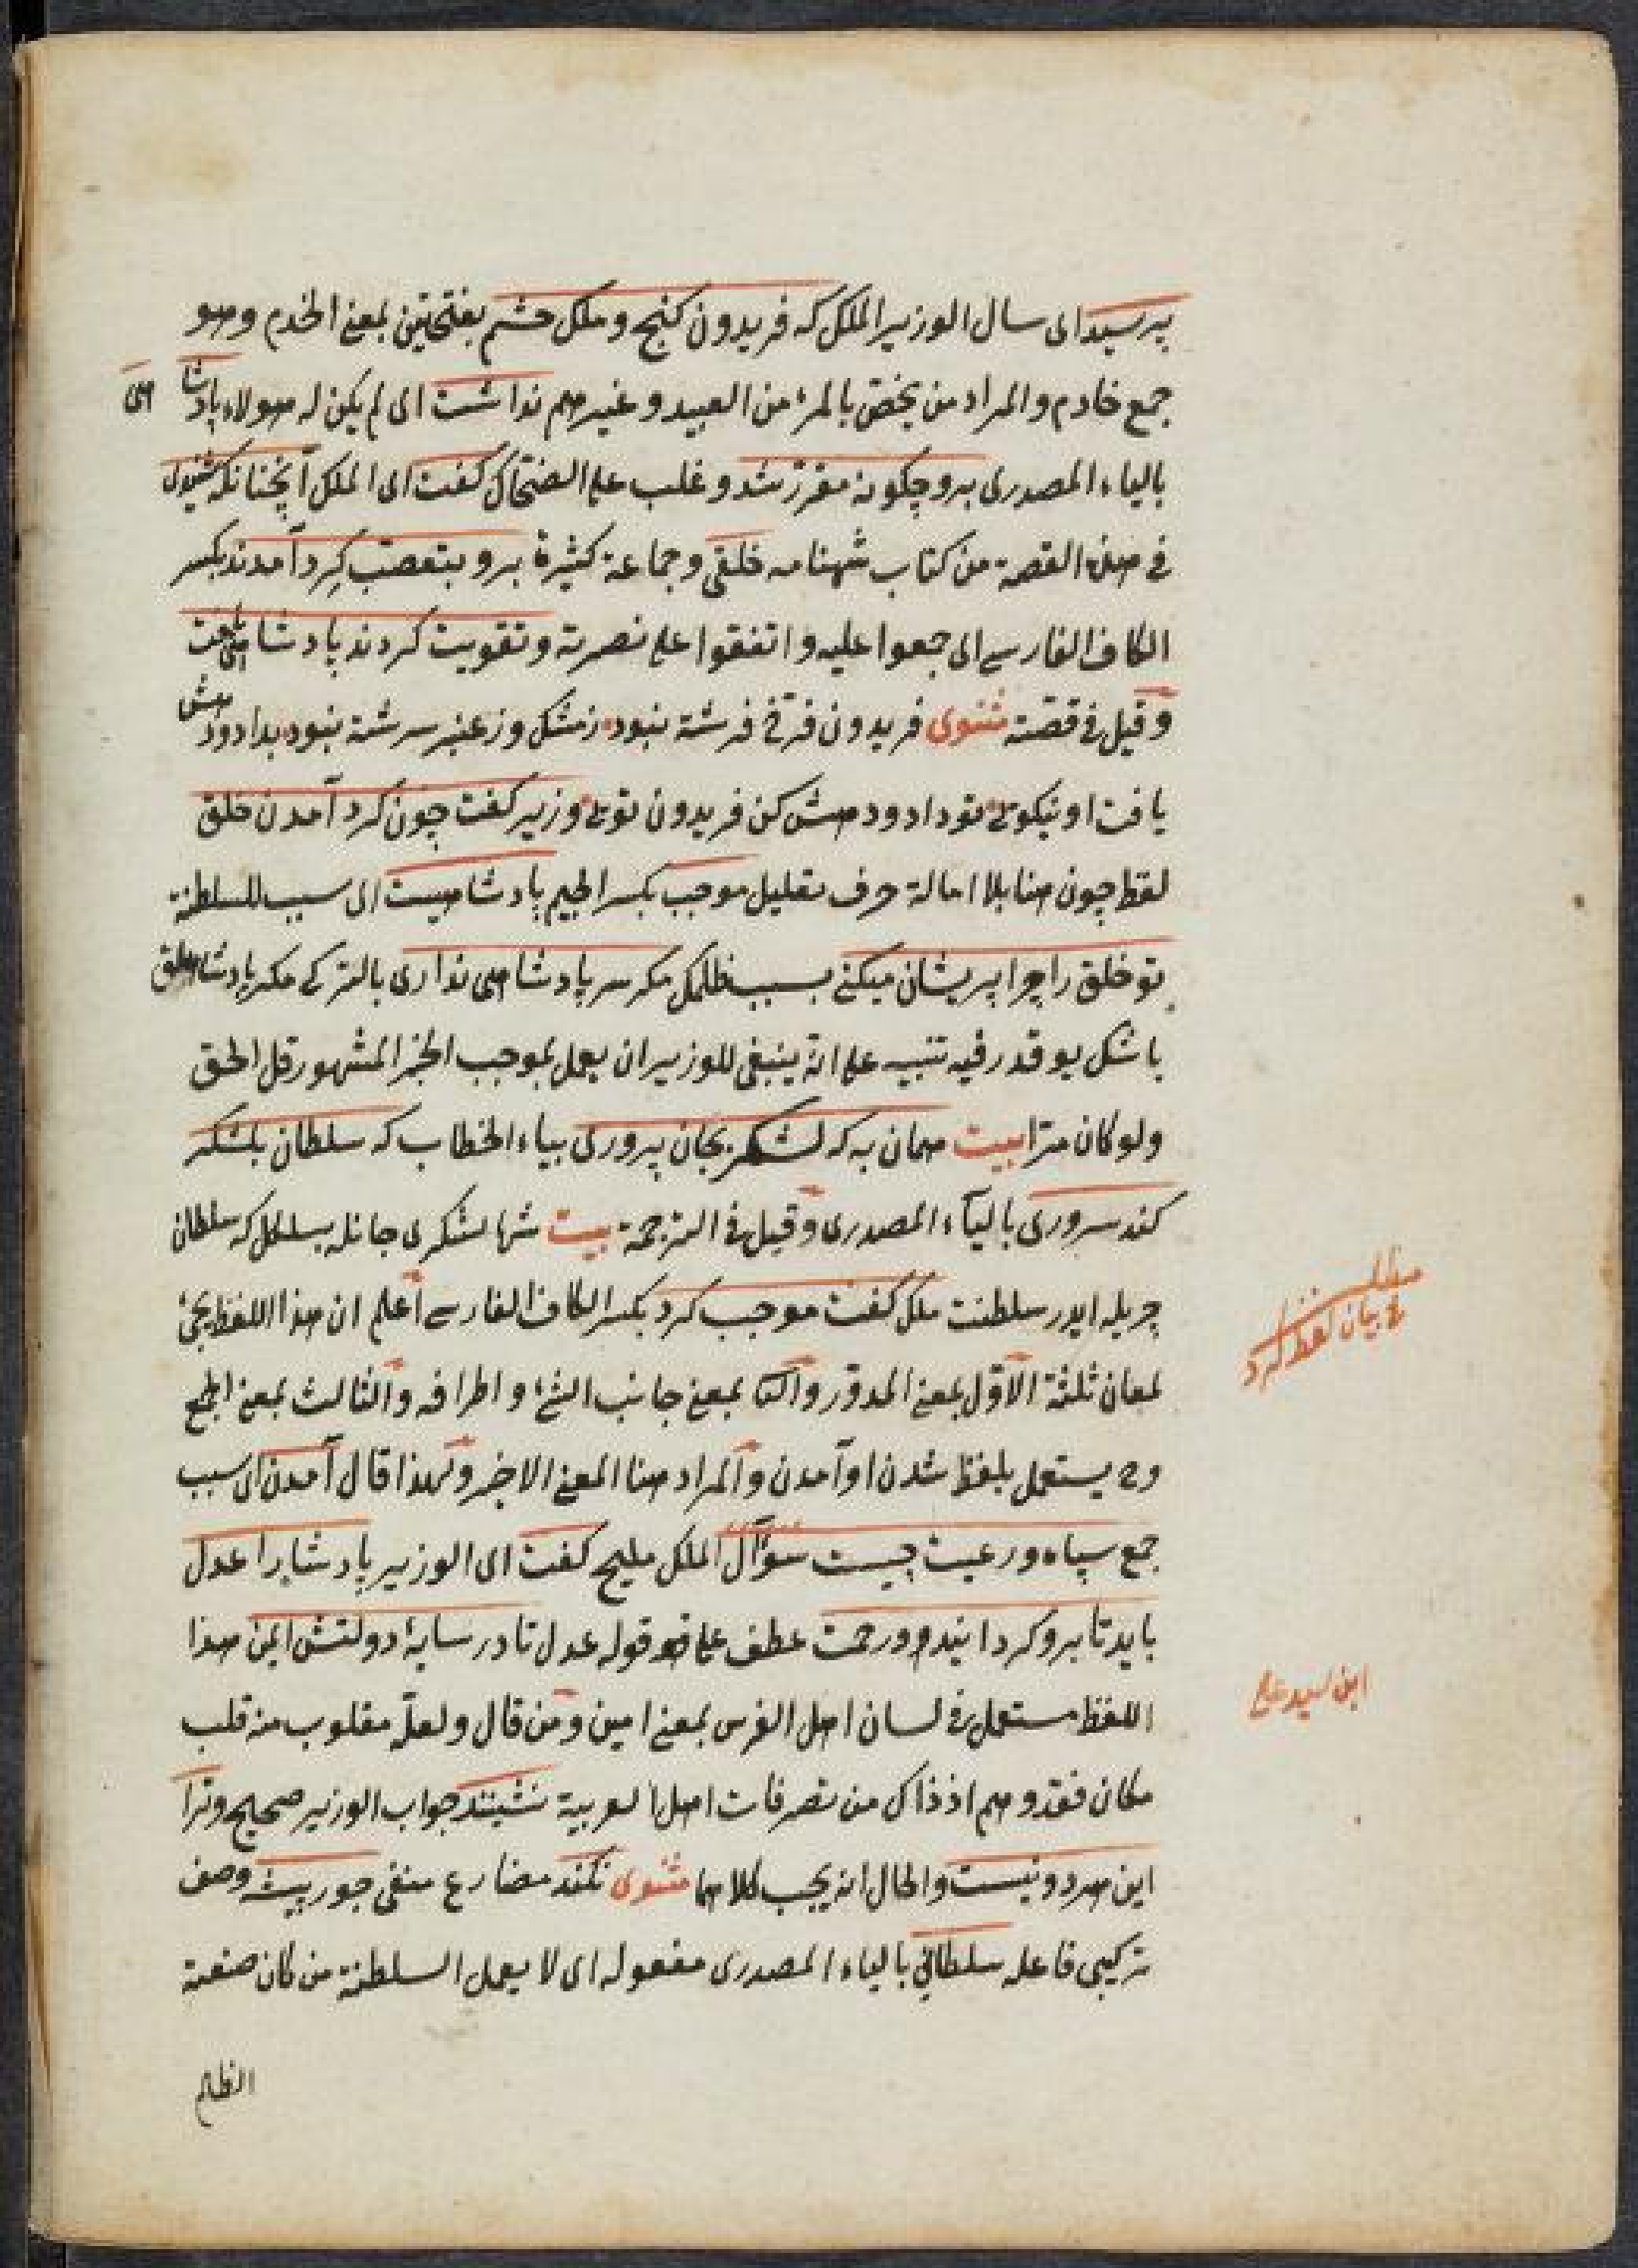 پرسید ای سال الوزیر الملک که فریدون کنج و ملک حشم بفتحتین بمعنی الخدم و هو
جمع خادم و المراد من یختص بالمرء من العبید و غیرهم نداشت ای لم یکن له هولاء پادشا هی
بالیاء المصدری برو چکونه مقرر شد و غلب علی الضحاک کفت ای الملک آنچنانکه شنیدی
فی هذه القصة من کتاب شهنامه خلقی و جماعة کثیرة برو بتعصب کرد آمدند بکسر
الکاف الفارسی ای جمعوا علیه و اتفقوا علی نصرته و تقویت کردند پادشاهی یافت
و قیل فی قصته مثنوی فریدون فرخ فرشته نبود زمشک و زعنبر سرشته نبود بداد و دهش
یافت او نیکویی تو داد و دهش کن فریدون تویی وزیر کفت چون کرد آمدن خلق
لفظ چون هنا بلا امالة حرف تعلیل موجب بکسر الجیم پادشاهیست ای سبب للسلطنة
تو خلق را چرا پریشان میکنی بسبب ظلمک مکر سر پادشاهی نداری بالترکی مکر پادشاهلق
باشک یوقدر فیه تنبیه علی انه ینبغی للوزیر ان یعمل بموجب الخبر المشهور قل الحق
ولو کان مرا بیت همان به که لشکر بجان پروری بیاء الخطاب که سلطان بلشکر
کند سروری بالیاء المصدری و قیل فی الترجمة بیت شها لشکری جانله بسلمک که سلطان
چریله ایدر سلطنت ملک کفت موجب کرد بکسر الکاف الفارسی اعلم ان هذا اللفظ یجئ
لمعان ثلثة الاول بمعنی المدور و الثا بمعنی جانب الشئ و اطرافه و الثالث بمعنی الجمع
وح یستعمل بلفظ شدن او آمدن و المراد هنا المعنی الاخیر و لهذا قال آمدن ای سبب
جمع سپاه و رعیت چیست سؤال الملک ملیح کفت ای الوزیر پادشاه را عدل
باید تا برو کرد ایند و رحمت عطف علی قوله عدل تا در سایۀ دولتش ایمن هذا
اللفظ مستعمل فی لسان اهل الفرس بمعنی امین و من قال و لعله مقلوب منه قلب
مکان فقد وهم اذ ذاک من تصرفات اهل العربیة نشینند جواب الوزیر صحیح و ترا
این هر دو نیست و الحال انه یجب کلاهما مثنوی نکند مضارع منفی جور پیشه وصف
ترکیبی فاعله سلطانی بالیاء المصدری مفعوله ای لا یعمل السلطنة من کان صنعته
الظلم
مطلب
فی بیان لفظ کرد
ابن سید علی